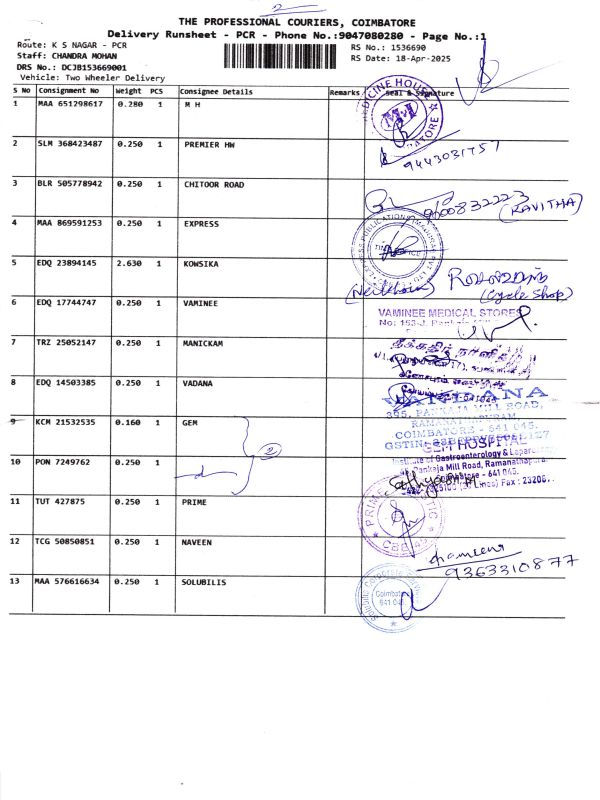 2
THE PROFESSIONAL COURIERS, COIMBATORE
Delivery Runsheet - PCR - Phone No.:9047080280 - Page No.:1
Route: K S NAGAR - PCR
RS No.: 1536690
Staff: CHANDRA MOHAN
RS Date: 18-Apr-2025
DRS No.: DCJB153669001
Vehicle: Two Wheeler Delivery
S No Consignment No Weight PCS Consignee Details Remarks Seal & Signature
1 MAA 651298617 0.280 1 M H
MEDICINE HOUSE
2 SLM 368423487 0.250 1 PREMIER HW
9443031757
3 BLR 505778942 0.250 1 CHITOOR ROAD
9600832223 (KAVITHA)
4 MAA 869591253 0.250 1 EXPRESS
5 EDQ 23894145 2.630 1 KOWSIKA
(Cycle Shop)
6 EDQ 17744747 0.250 1 VAMINEE
VAMINEE MEDICAL STORES
7 TRZ 25052147 0.250 1 MANICKAM
8 EDQ 14503385 0.250 1 VADANA
395, PANKAJA MILL ROAD,
COIMBATORE - 641 045.
9 KCM 21532535 0.160 1 GEM
2
GEM HOSPITAL
Institute of Gastroenterology & Laparo
Pankaja Mill Road, Ramanathapuram
10 PON 7249762 0.250 1
Sathya
11 TUT 427875 0.250 1 PRIME
12 TCG 50850851 0.250 1 NAVEEN
9363310877
13 MAA 576616634 0.250 1 SOLUBILIS
Coimbatore
641 045